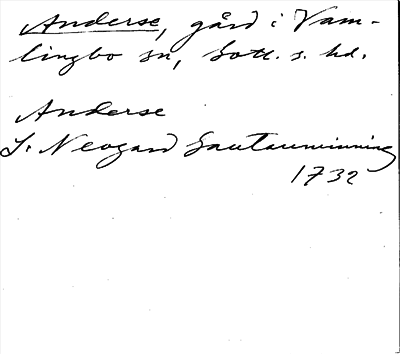 Anderse, gård i Vam-
lingbo sn, Gotl. s. hd.
Anderse
J. Neogard Gautauminning
1732